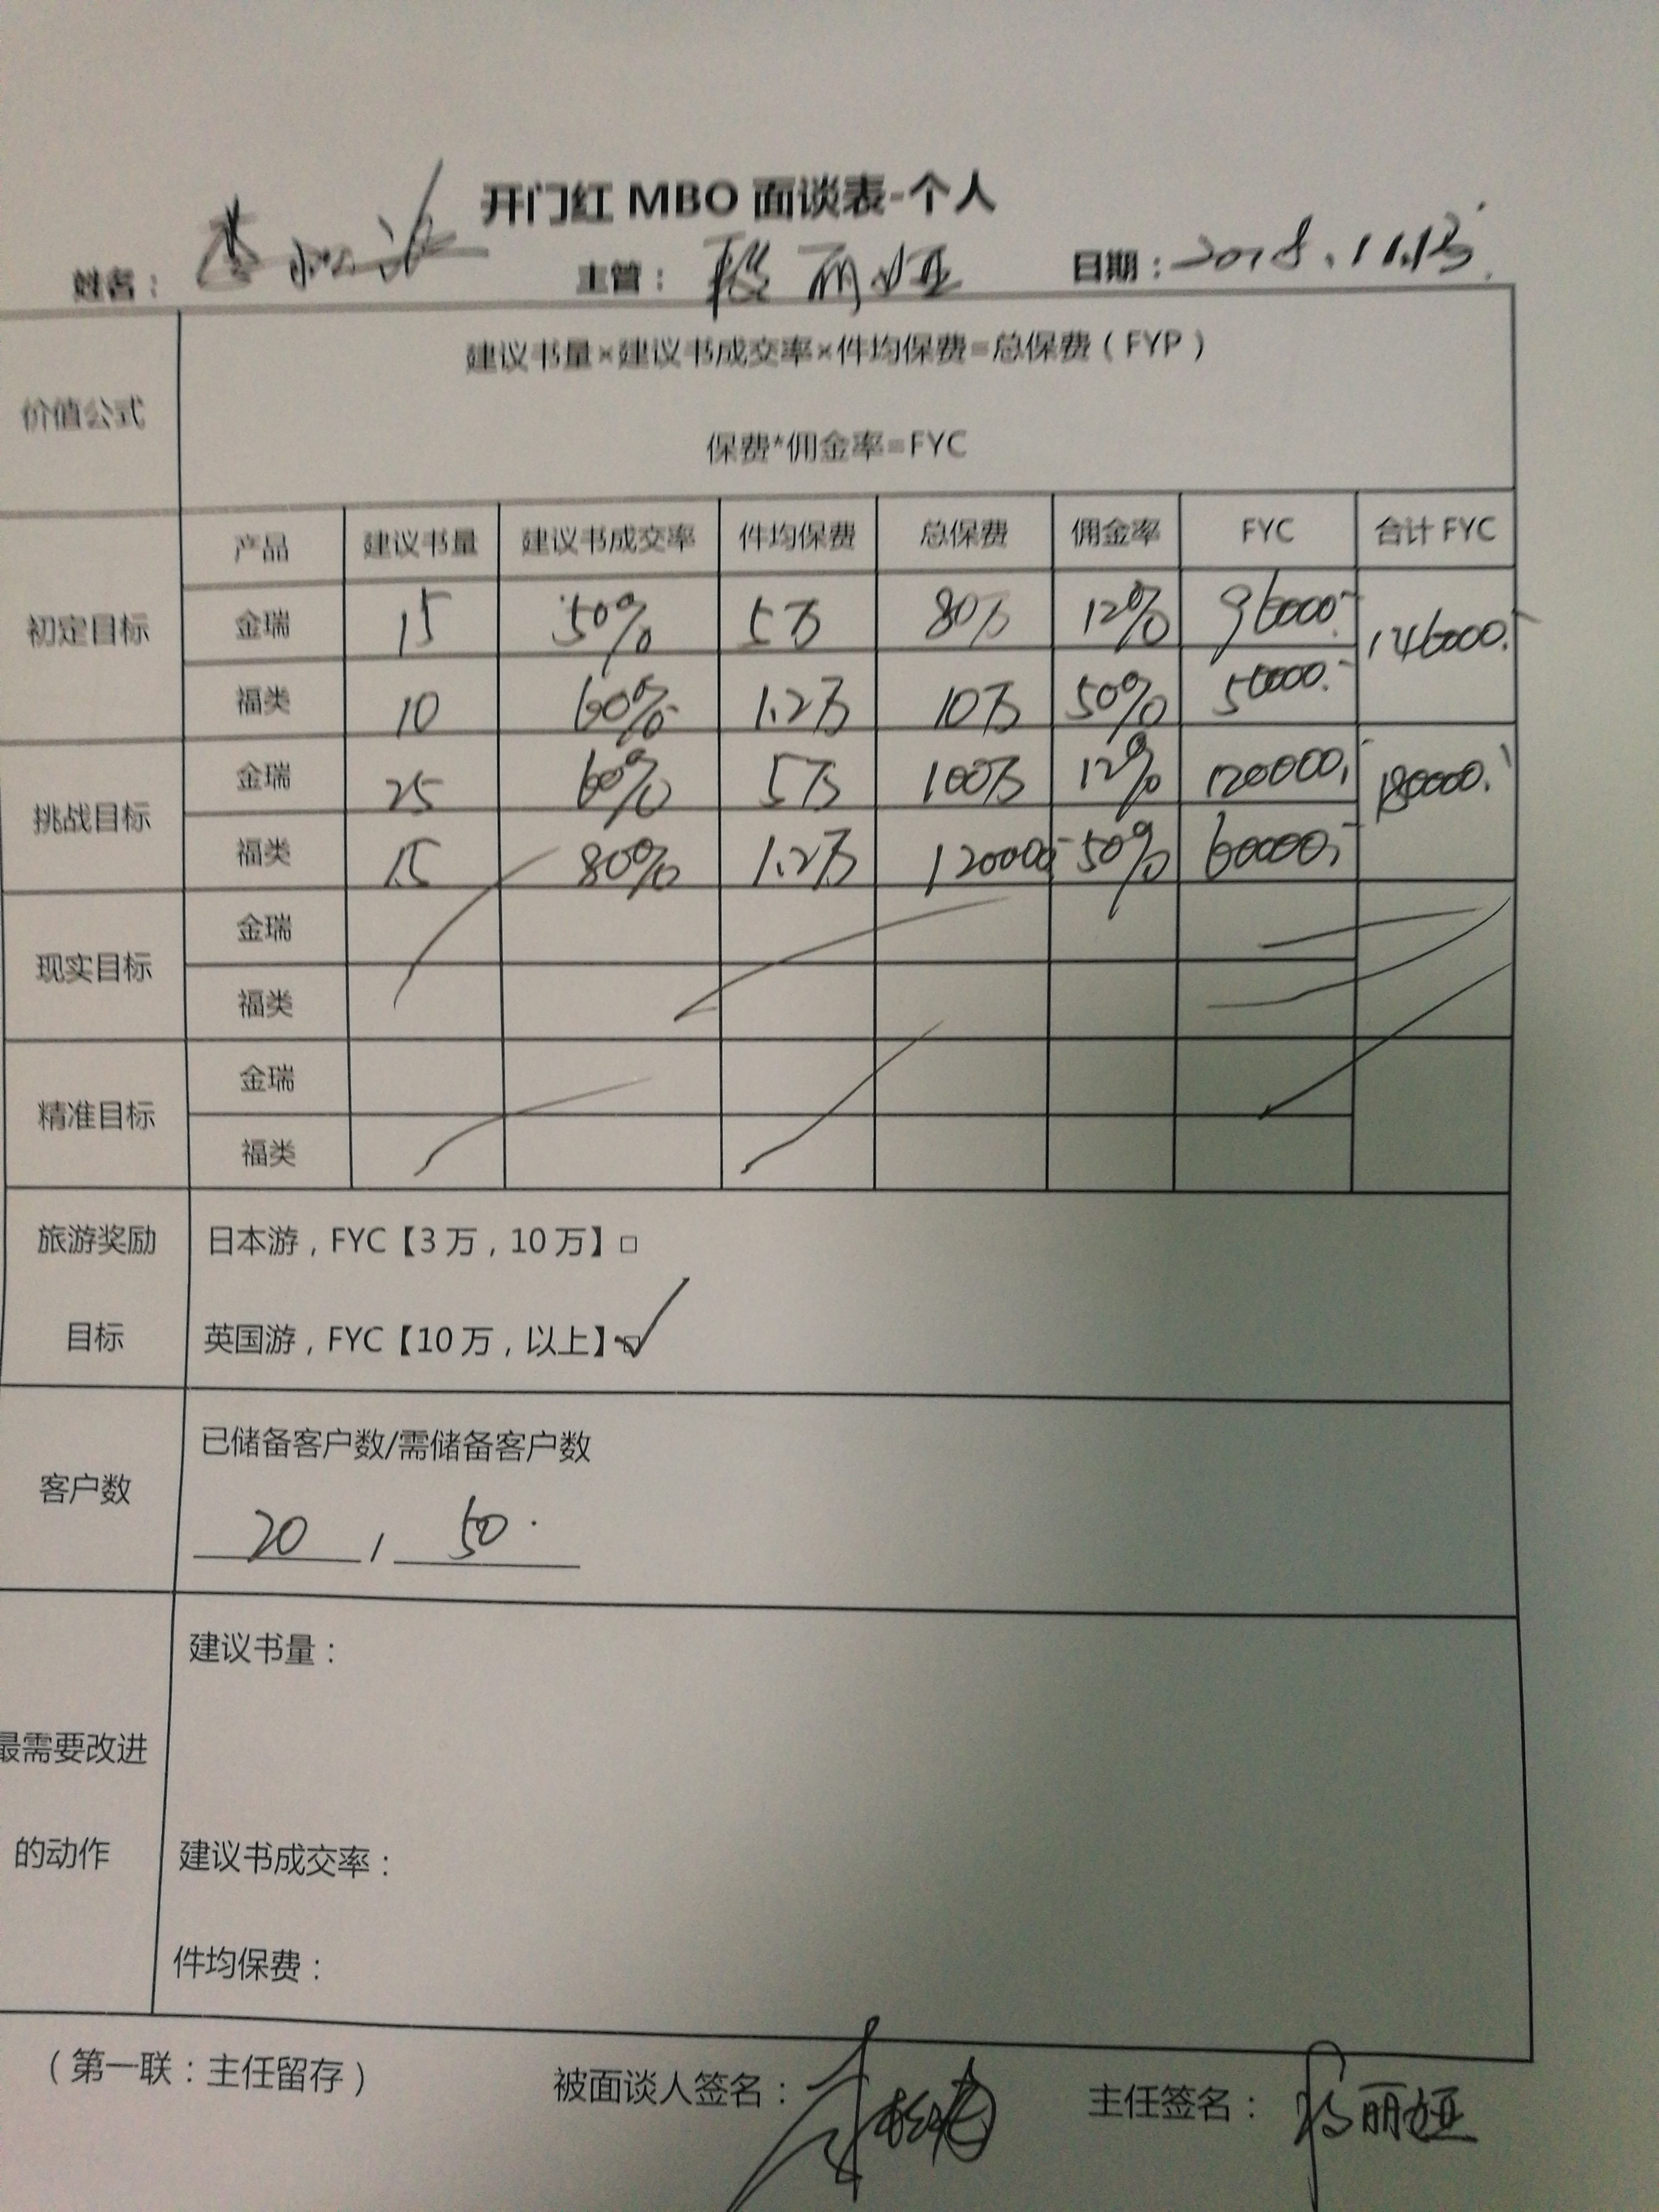 开门红 MBO 面谈表-个人
姓名： 主管：段丽娅 日期：2018.11.13.
价值公式
建议书量×建议书成交率×件均保费=总保费（FYP）
保费*佣金率=FYC
产品 建议书量 建议书成交率 件均保费 总保费 佣金率 FYC 合计 FYC
初定目标
金瑞 15 50% 5万 80万 12% 96000.- 146000.-
福类 10 60% 1.2万 10万 50% 50000.-
挑战目标
金瑞 25 60% 5万 100万 12% 120000.- 180000.-
福类 15 80% 1.2万 120000- 50% 60000.-
现实目标
金瑞
福类
精准目标
金瑞
福类
旅游奖励
目标
日本游，FYC【3 万，10 万】□
英国游，FYC【10 万，以上】□✓
客户数
已储备客户数/需储备客户数
20 / 50.
最需要改进
的动作
建议书量：
建议书成交率：
件均保费：
（第一联：主任留存） 被面谈人签名： 主任签名：段丽娅